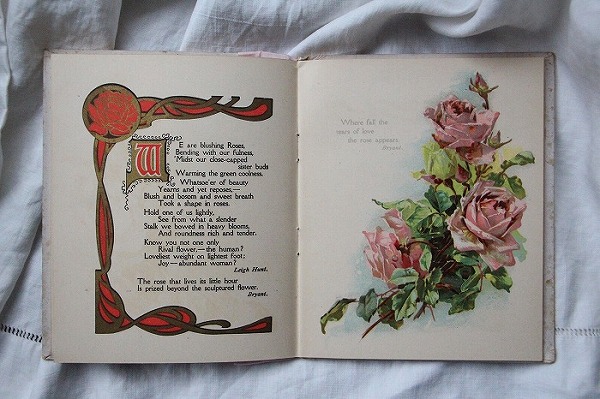 WE are blushing Roses,
Bending with our fulness,
'Midst our close-capped
sister buds
Warming the green coolness.
Whatsoe'er of beauty
Yearns and yet reposes,—
Blush and bosom and sweet breath
Took a shape in roses.
Hold one of us lightly,
See from what a slender
Stalk we bowed in heavy blooms,
And roundness rich and tender.
Know you not one only
Rival flower,—the human?
Loveliest weight on lightest foot;
Joy—abundant woman?
Leigh Hunt.
The rose that lives its little hour
Is prized beyond the sculptured flower.
Bryant.
Where fell the
tears of love
the rose appears.
Bryant.